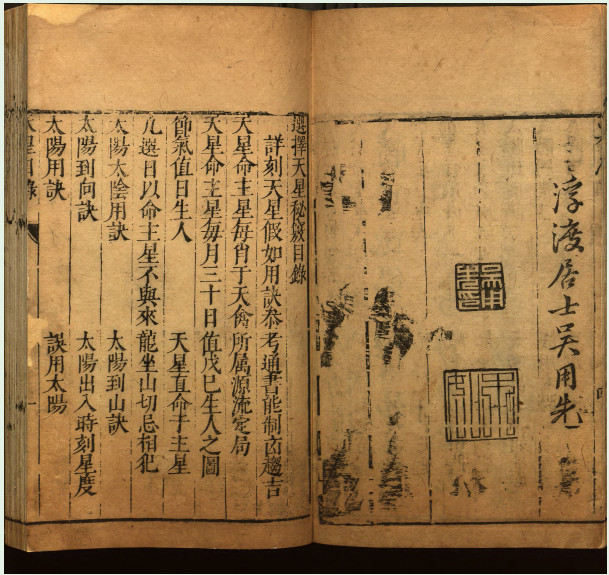 浮渡居士吳用先
選擇天星秘竅目錄
詳刻天星假如用訣叅考通書能制㐫趨吉
天星命主星每肖于天禽所屬源流定局
天星命主星每月三十日值戊巳生人之圖
節氣值日生人　天星直命于主星
凡選日以命主星不與來龍坐山切忌相犯
太陽太陰用訣　太陽到山訣
太陽到向訣　太陽出入時刻星度
太陽用訣　誤用太陽
星目錄　一